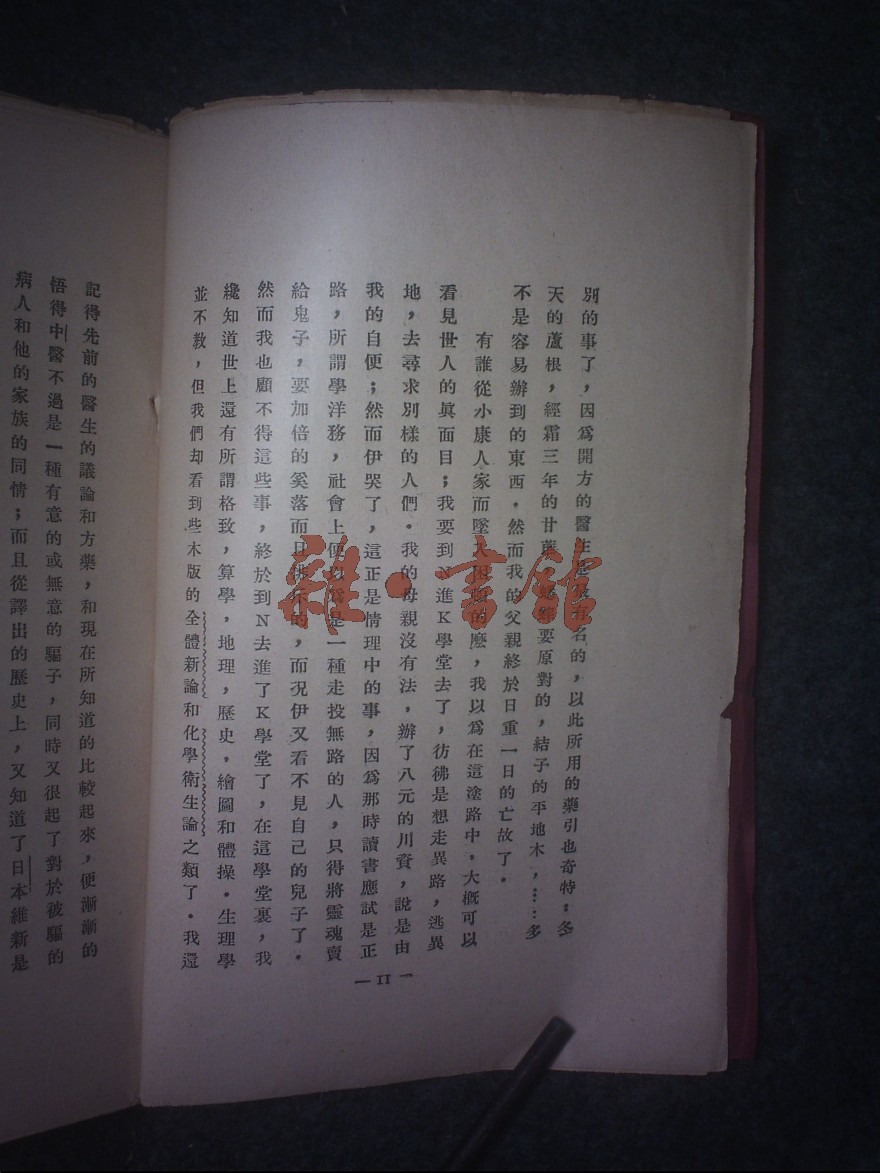 別的事了，因爲開方的醫生是最有名的，以此所用的藥引也奇特：冬
天的蘆根，經霜三年的甘蔗，蟋蟀要原對的，結子的平地木，……多
不是容易辦到的東西．然而我的父親終於日重一日的亡故了．
有誰從小康人家而墜入困頓的麽，我以爲在這塗路中，大概可以
看見世人的眞面目；我要到N進K學堂去了，彷彿是想走異路，逃異
地，去尋求別樣的人們．我的母親沒有法，辦了八元的川資，說是由
我的自便；然而伊哭了，這正是情理中的事，因爲那時讀書應試是正
路，所謂學洋務，社會上便以爲是一種走投無路的人，只得將靈魂賣
給鬼子，要加倍的奚落而且排斥的，而况伊又看不見自己的兒子了．
然而我也顧不得這些事，終於到N去進了K學堂了，在這學堂裏，我
纔知道世上還有所謂格致，算學，地理，歷史，繪圖和體操．生理學
並不教，但我們却看到些木版的全體新論和化學衛生論之類了．我還
— 11 —
記得先前的醫生的議論和方藥，和現在所知道的比較起來，便漸漸的
悟得中醫不過是一種有意的或無意的騙子，同時又很起了對於被騙的
病人和他的家族的同情；而且從譯出的歷史上，又知道了日本維新是
雜·書館